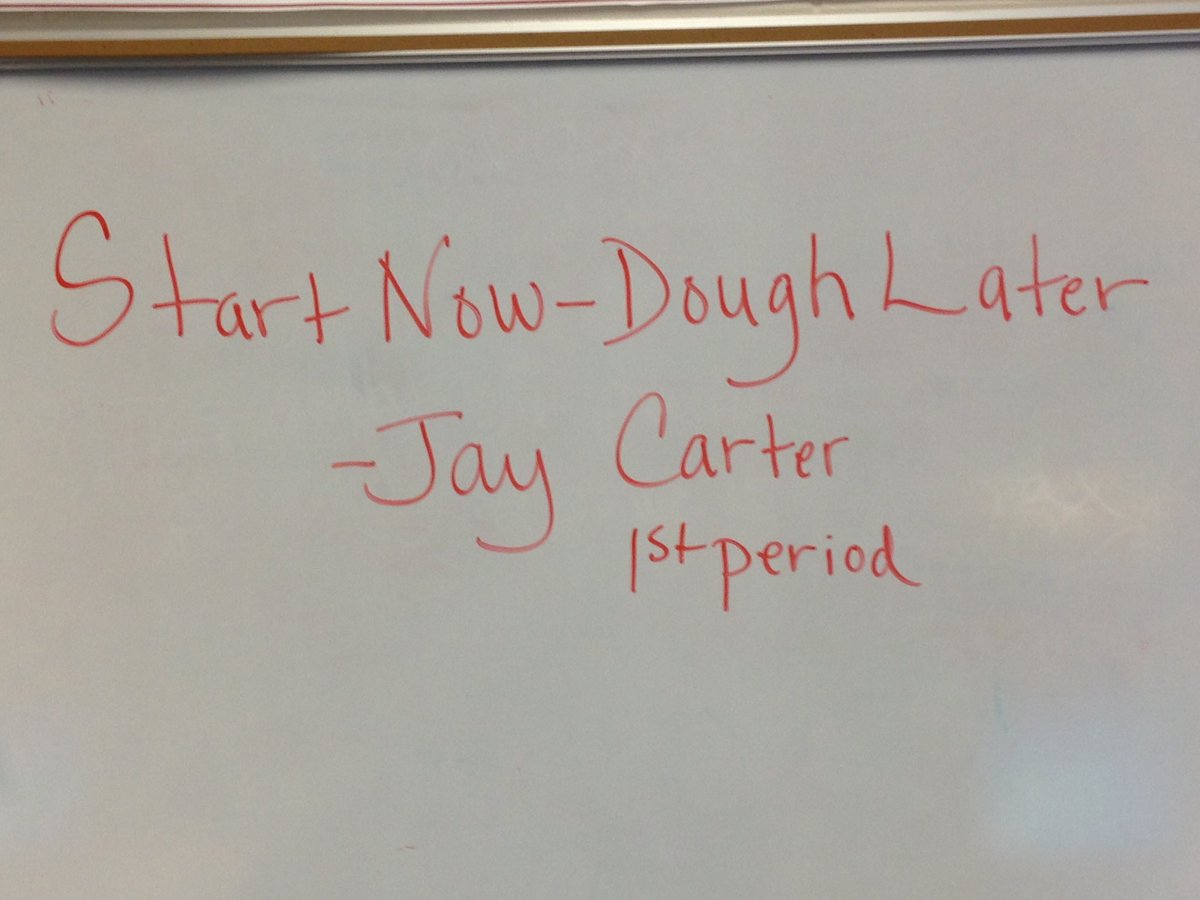 Start Now - Dough Later
- Jay Carter
1st period